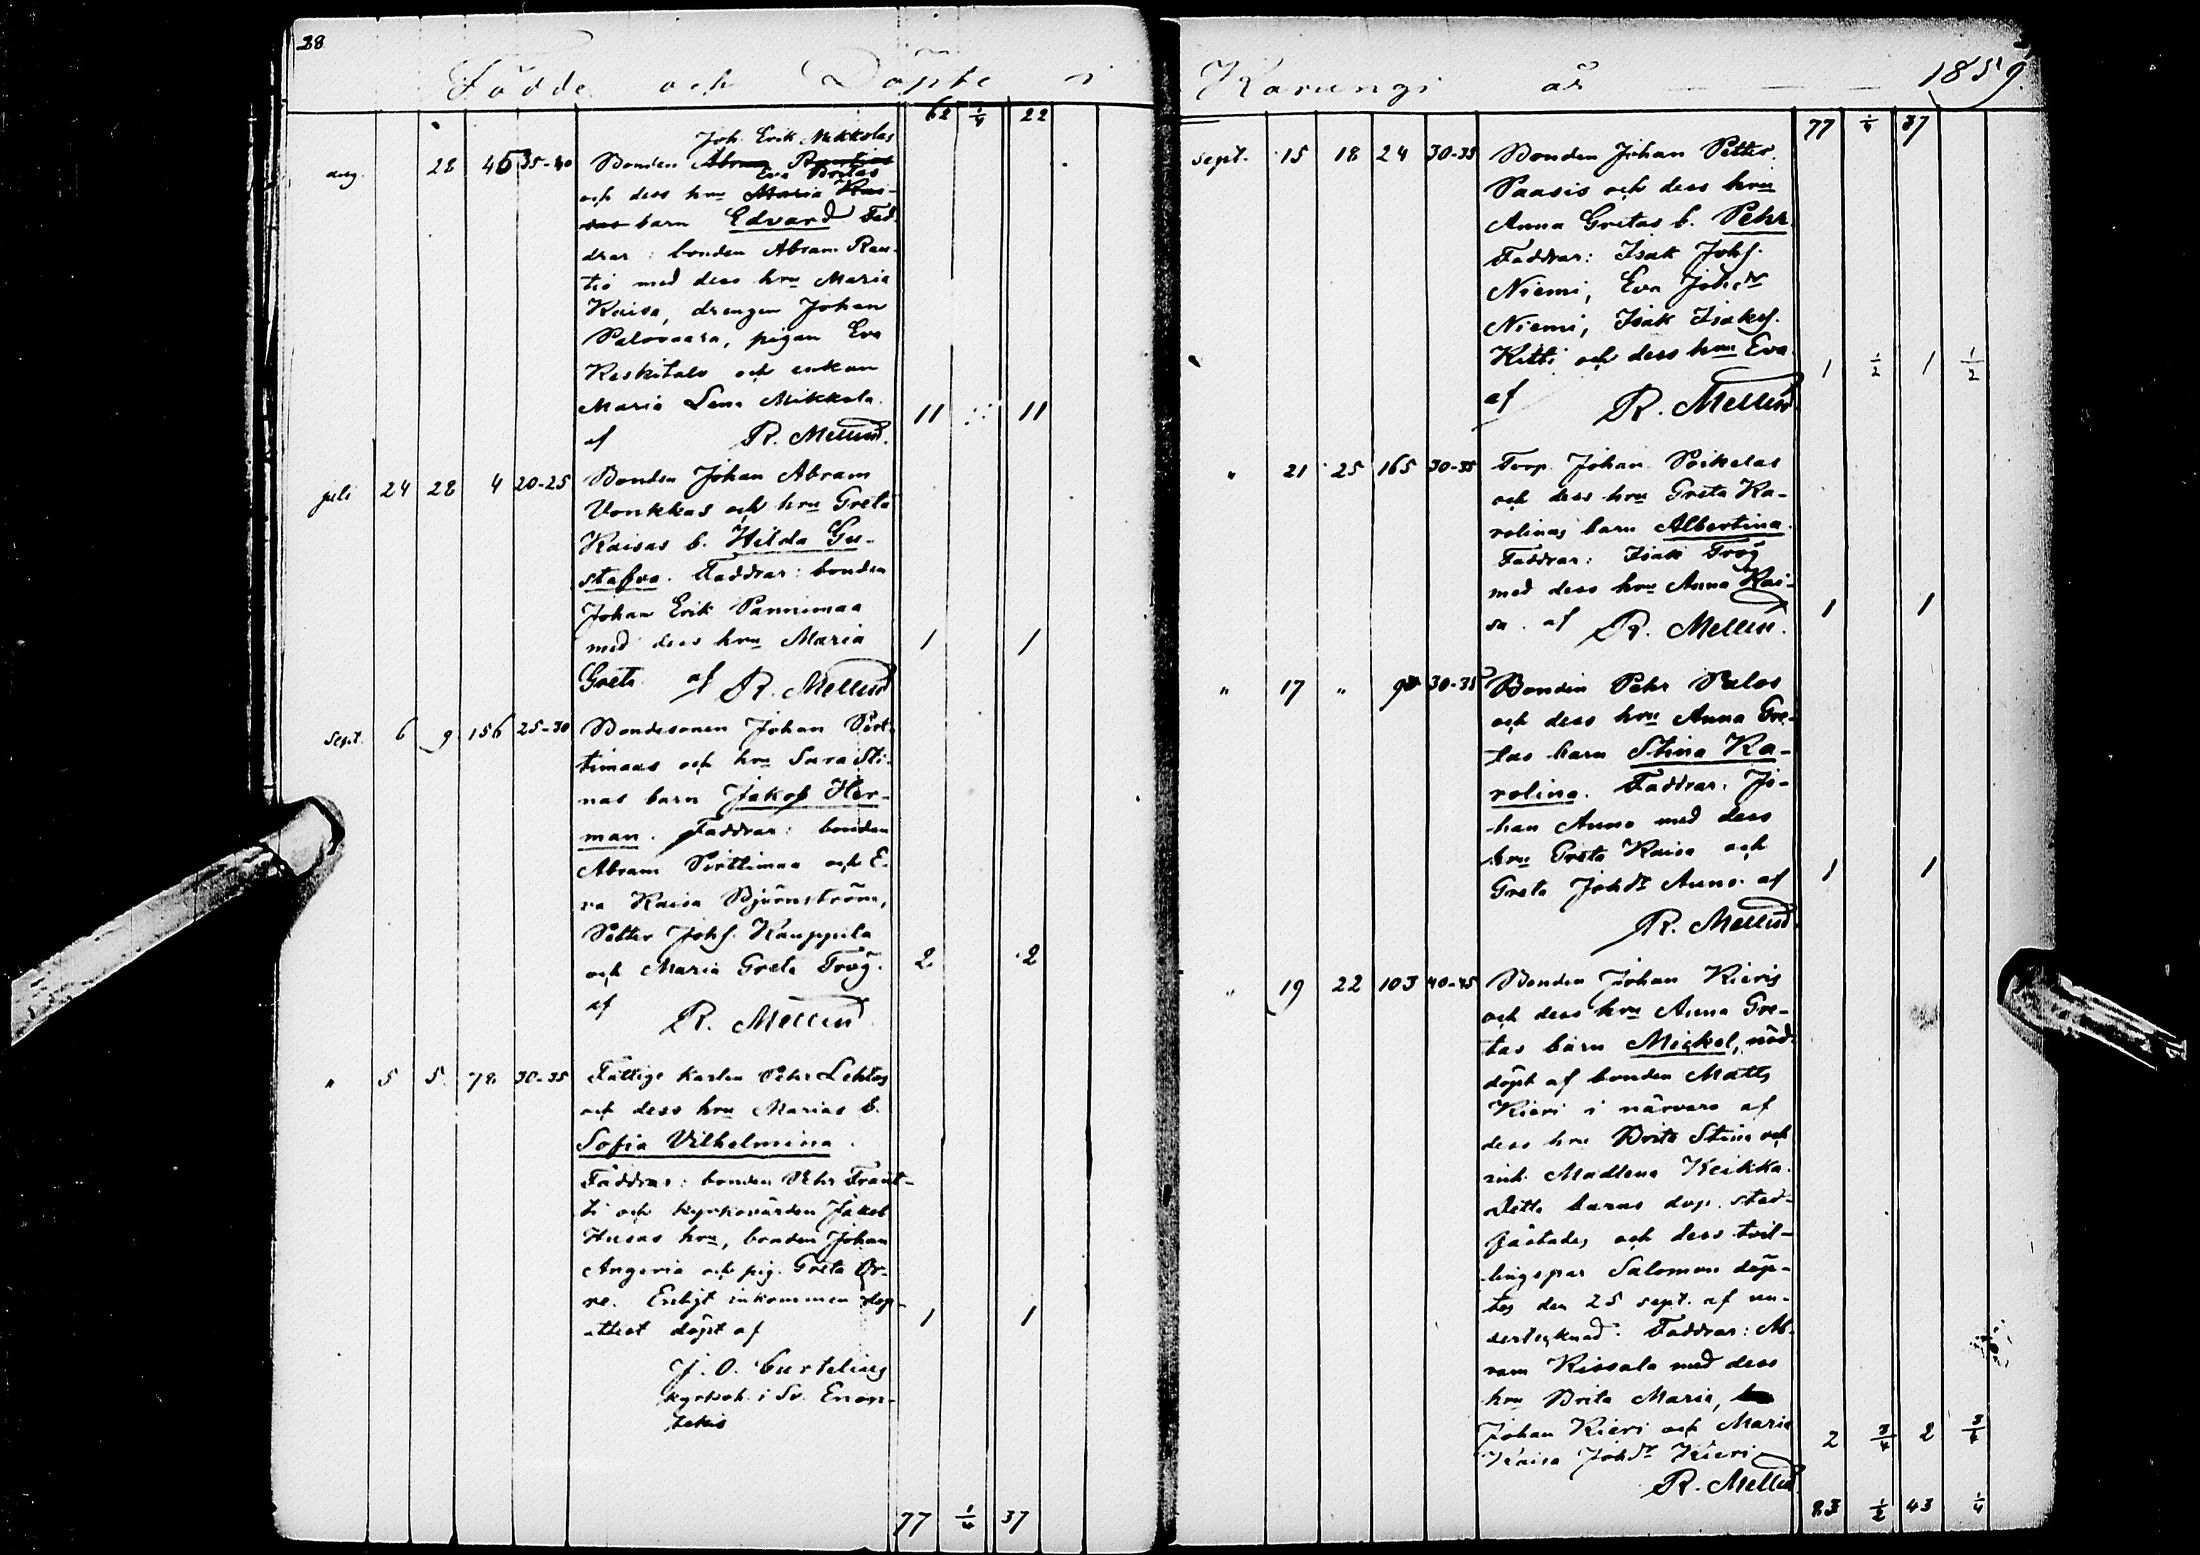 28
Födde och Döpte i
62 1/4 22
Joh. Erik Mikkolas
aug. 28 46 35-40 Bonden Abram Rautios
Eva Britas
och dess hru Maria Kai-
sas barn Edvard Fad-
drar: bonden Abram Rau-
tio med dess hru Maria
Kaisa, drengen Johan
Palovaara, pigan Eva
Keskitalo och enkan
Maria Lena Mikkola. 11 11
af R. Mellin.
juli 24 28 4 20-25 Bonden Johan Abram
Vonkkas och hru Greta
Kaisas b. Hilda Gu-
stafva. Faddrar: bonden
Johan Erik Pannimaa
med dess hru Maria 1 1
Greta af R. Mellin
Sept. 6 9 156 25-30 Bondesonen Johan Pirt-
timaas och hru Sara Sti-
nas barn Jakob Her-
man. Faddrar: bonden
Abram Pirttimaa och E-
va Kaisa Björnström,
Petter Johs. Kauppila
och Maria Greta Trög. 2 2
af R. Mellin
" 5 5 78 30-35 Fattige karlen Pehr Lehtos
och dess hru Marias b.
Sofia Vilhelmina.
Faddrar: bonden Pehr Frant-
ti och kyrkovärden Jakob
Husas hru, bonden Johan
Angeria och pig. Greta Or-
re. Enligt inkommen dop-
attest döpt af 1 1
J. O. Curtelius
kyrkoh. i Sv. Enon-
tekis
77 1/4 37
Karungi år 1859.
77 1/4 37
sept. 15 18 24 30-35 Bonden Johan Petter
Paasis och dess hru
Anna Gretas b. Pehr.
Faddrar: Isak Johs.
Niemi, Eva Johdr
Niemi, Isak Isakss.
Kitti och dess hru Eva 1 1/2 1 1/2
af R. Mellin
" 21 25 165 30-35 Torp. Johan Poikelas
och dess hru Greta Ka-
rolinas barn Albertina.
Faddrar: Isak Trög
med dess hru Anna Kai-
sa. af R. Mellin. 1 1
" 17 " 90 30-35 Bonden Pehr Palos
och dess hru Anna Gre-
tas barn Stina Ka-
rolina. Faddrar: Jo-
han Anno med dess
hru Greta Kaisa och
Greta Johdr Anno. af 1 1
R. Mellin.
" 19 22 103 40-45 Bonden Johan Kieris
och dess hru Anna Gre-
tas barn Mickel, nöd-
döpt af bonden Matts
Kieri i närvaro af
dess hru Brita Stina och
inh. Madlena Keikka.
Detta barns dop stad-
fästades och dess tvil-
lingspar Salomon döp-
tes den 25 sept. af un-
dertecknad. Faddrar: Ab-
ram Kissala med dess
hru Brita Maria,
Johan Kieri och Maria 2 3/4 2 3/4
Kaisa Johdr Kieri
R. Mellin.
83 1/2 43 1/4